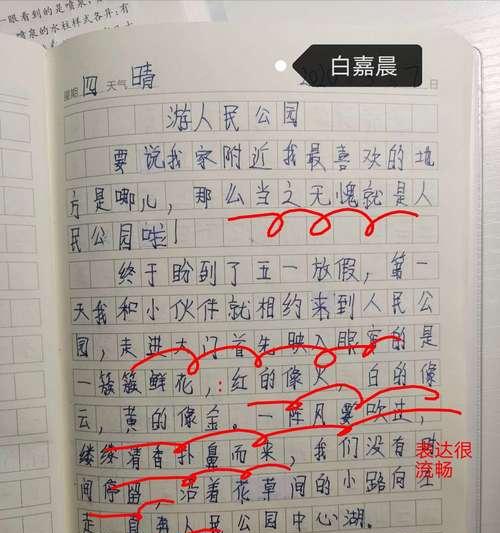 一眼看到的是喷泉,
喷泉的水柱样式各异:有
白嘉晨
星期 四 天气 晴 日
游人民公园
要说我家附近我最喜欢的地
方是哪儿,那么当之无愧就是人
民公园啦!
终于盼到了五一放假,第一
天我和小伙伴就相约来到人民公
园,走进大门首先映入眼帘的是
一簇簇鲜花,:红的像火,白的像
云,黄的像金。一阵风吹过,
缕缕清香扑鼻而来,我们没有
表达很
流畅
间停留,沿着花草间的小路向
走,直奔人民公园中心湖。